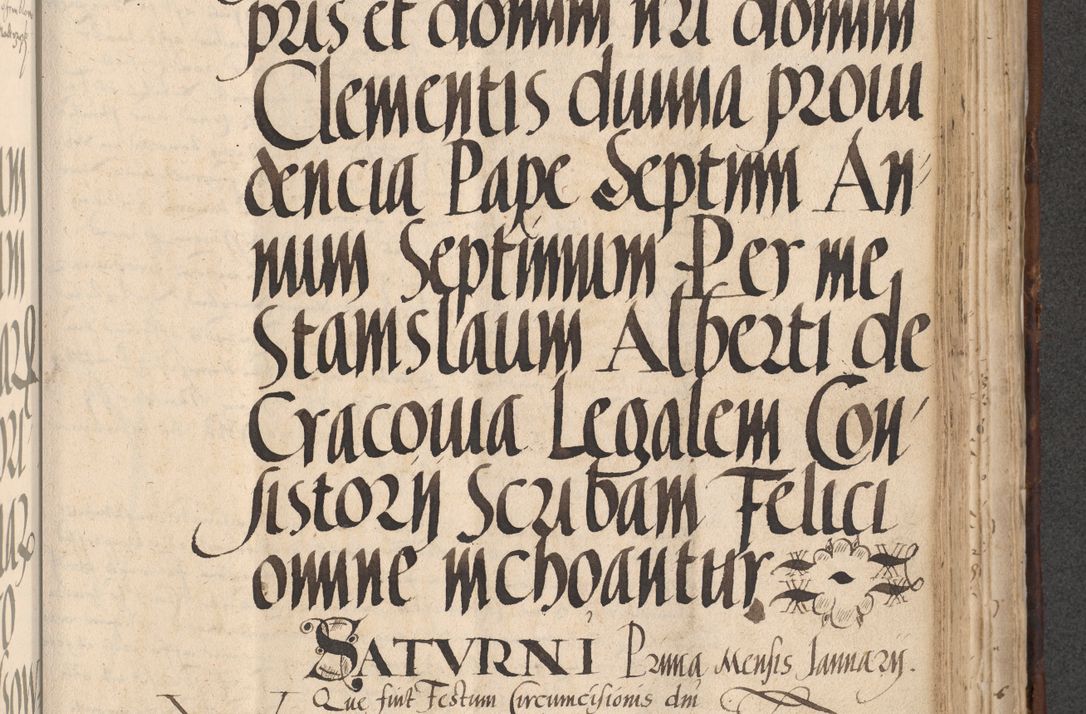 pris et domini nri domini
Clementis diuina proui
dencia Pape Septimi An-
num Septimum Per me
Stanislaum Alberti de
Cracouia Legalem Con-
sistorij Scribam Felici
omine inchoantur
SATVRNI Prima Mensis Januarij.
Que fuit Festum Circumcisionis dni